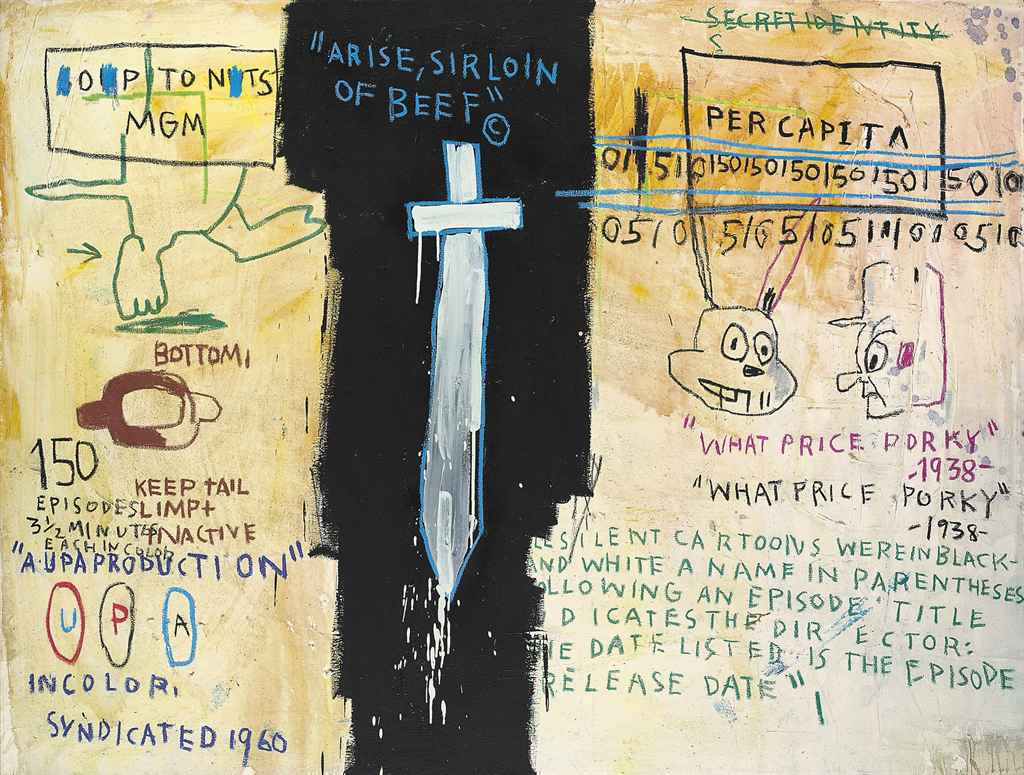 SECRET IDENTITY
S
"ARISE, SIRLOIN
OF BEEF"
©
SOUP TO NUTS
MGM
PER CAPITA
BOTTOM,
150
EPISODES
3½ MINUTES
EACH IN COLOR
KEEP TAIL
LIMP+
INACTIVE
"A.UPA PRODUCTION"
U P A
IN COLOR,
SYNDICATED 1960
"WHAT PRICE PORKY"
-1938-
"WHAT PRICE PORKY"
-1938-
SILENT CARTOONS WERE IN BLACK-
AND WHITE A NAME IN PARENTHESES
OLLOWING AN EPISODE TITLE
DICATES THE DIRECTOR:
HE DATE LISTED IS THE EPISODE
RELEASE DATE"